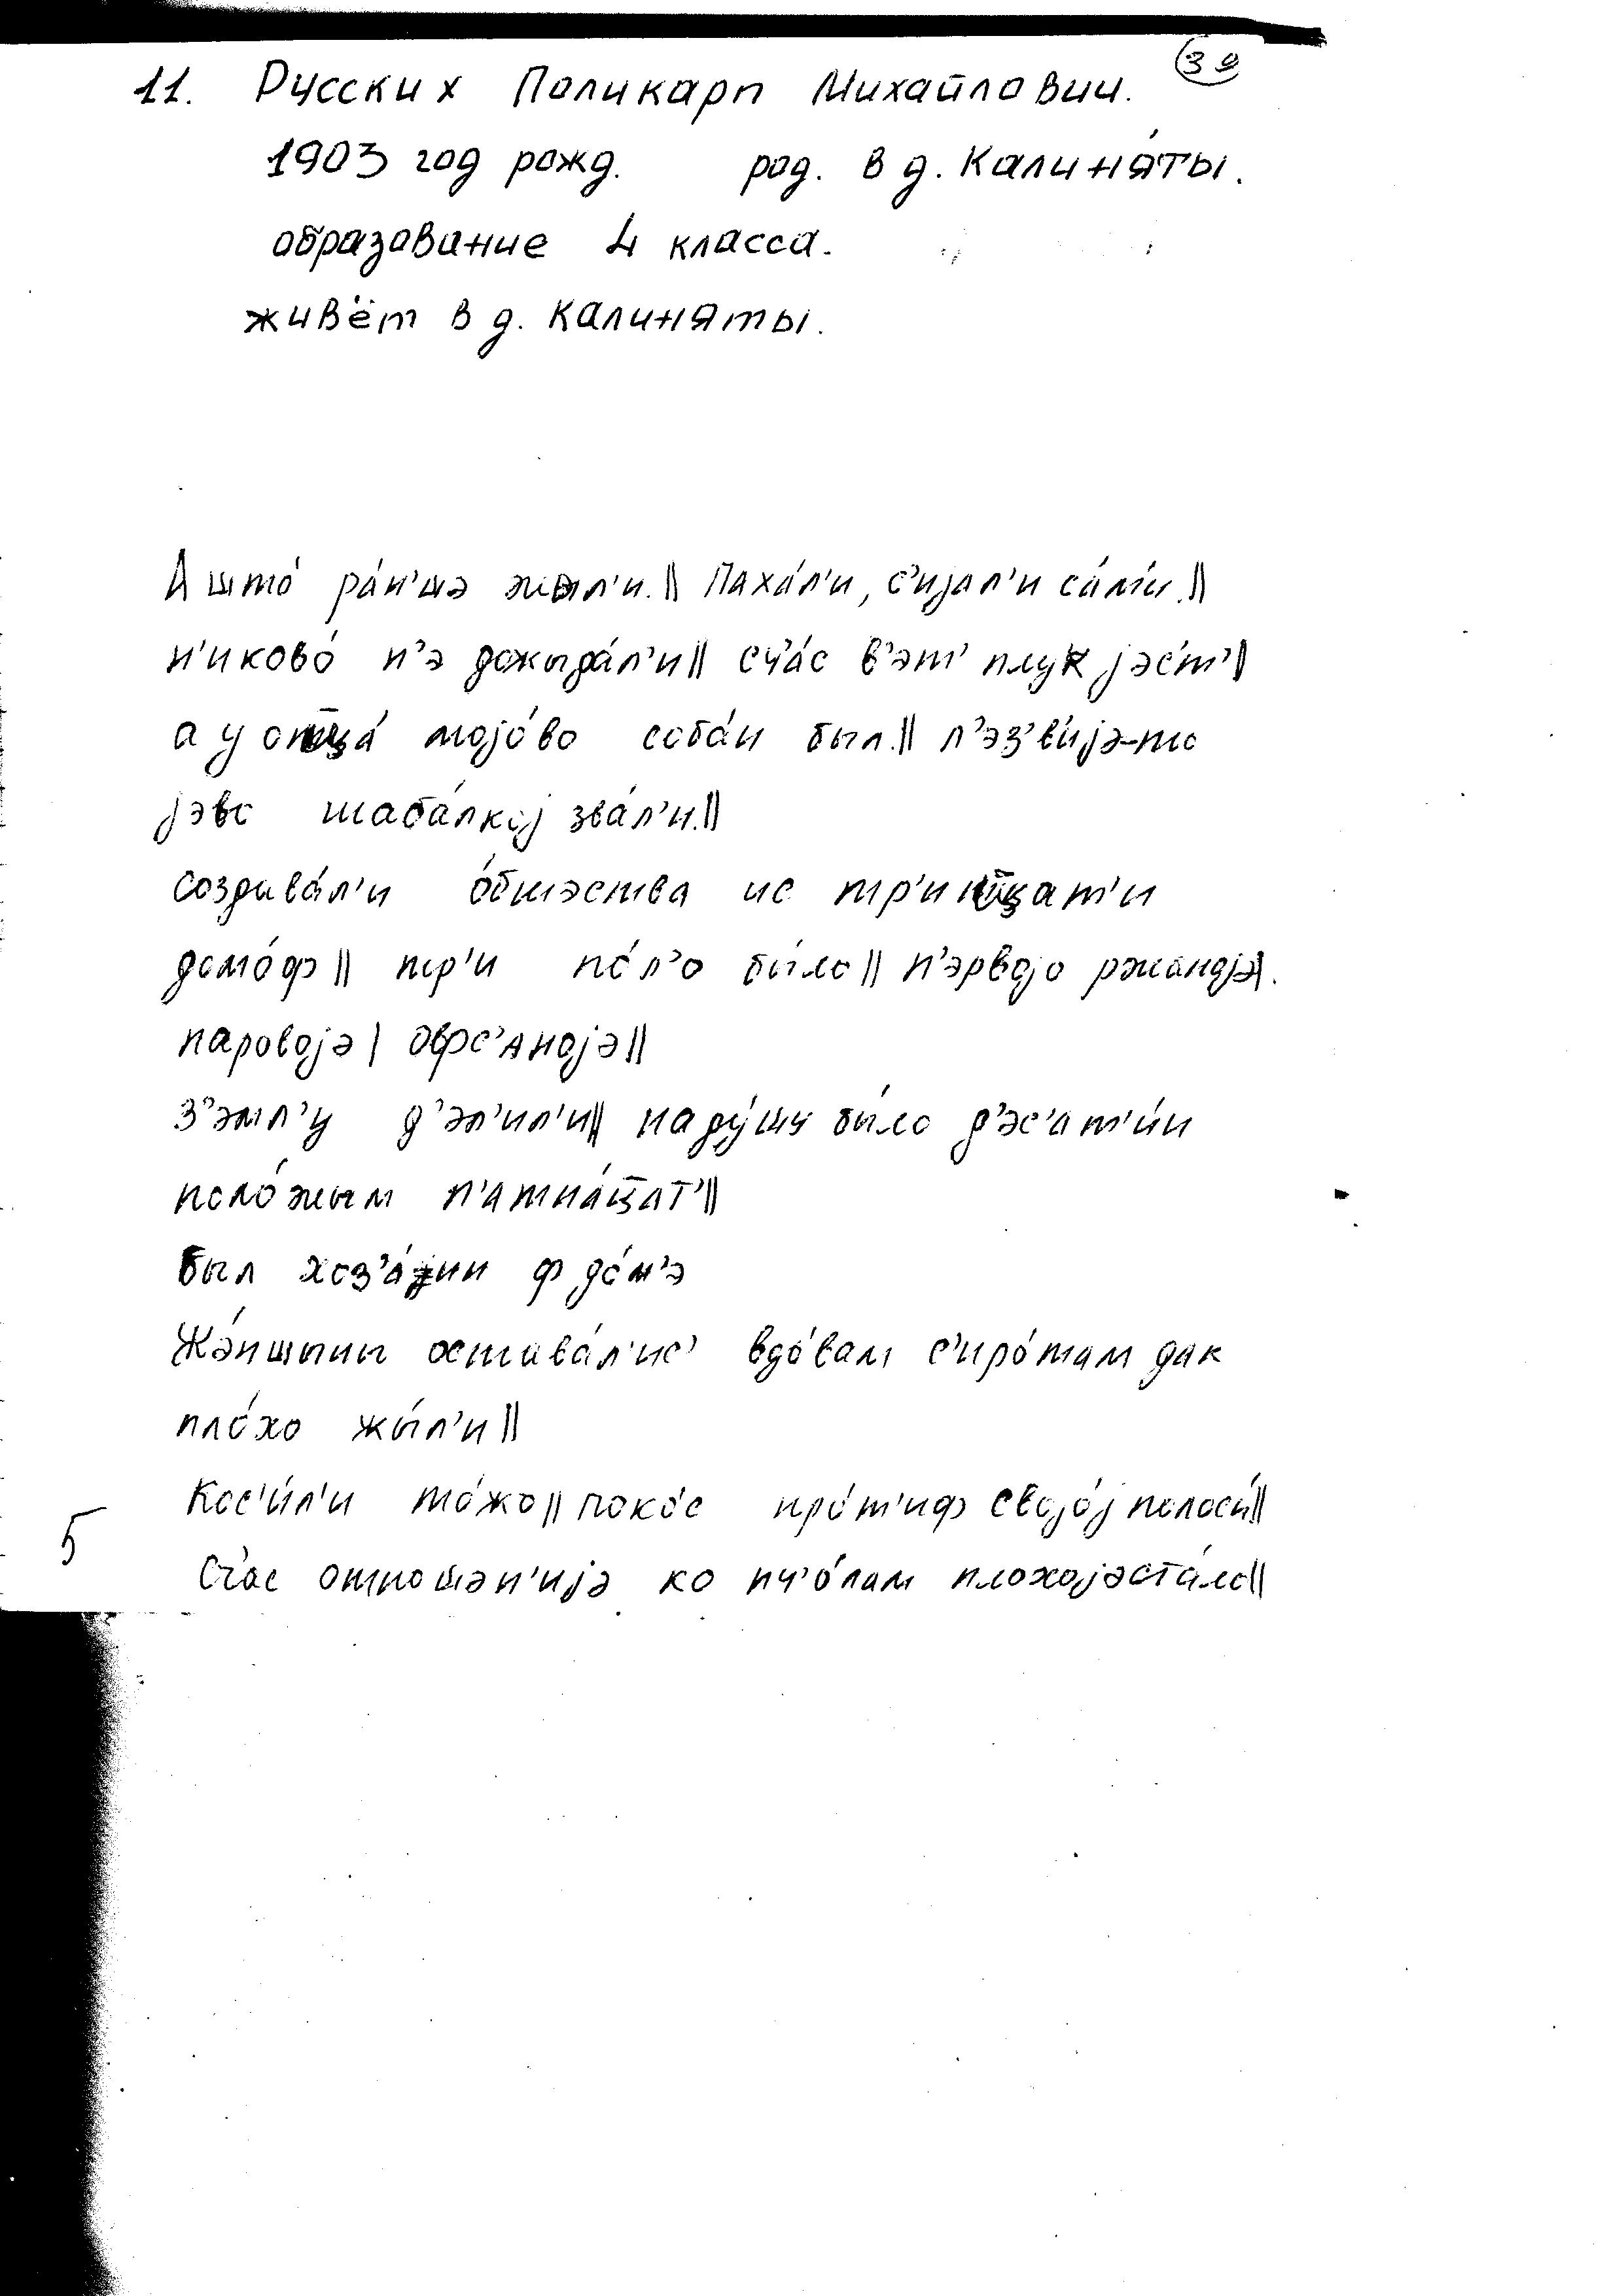 39
11. Русских Поликарп Михайлович.
1903 год рожд. род. в д. Калиня́ты.
образование 4 класса.
живёт в д. Калиняты.
А што́ ра́н'шэ жыл'и.|| Паха́л'и, с'ијал'и са́м'и.||
н'иково́ н'э дожыда́л'и|| сч'а́с в'эт' плук јэ́ст'||
а у отца́ мојо́во соба́н был.|| л'э́з'в'ијэ-то
јэво шаба́лкој зва́л'и.||
создава́л'и о́бшэства ис тр'иц̄ат'и
домо́ф || тр'и по́л'о бы́ло || п'э́рвојо ржано́јэ|.
паровојэ | офс'анојэ||
з'эмл'у д'эл'ил'и|| на ду́шу бы́ло д'эс'ат'и́н
поло́жым п'атна́ц̄ат'||
был хоз'а́јин ф до́м'э
Жэ́ншыны остава́л'ис' вдо́вам с'иро́там дак
пло́хо жы́л'и ||
Кос'и́л'и то́жо || поко́с про́т'иф својо́ј полосы́||
5
Сч'ас отношэн'ијэ ко пч'о́лам плохојэ ста́ло||